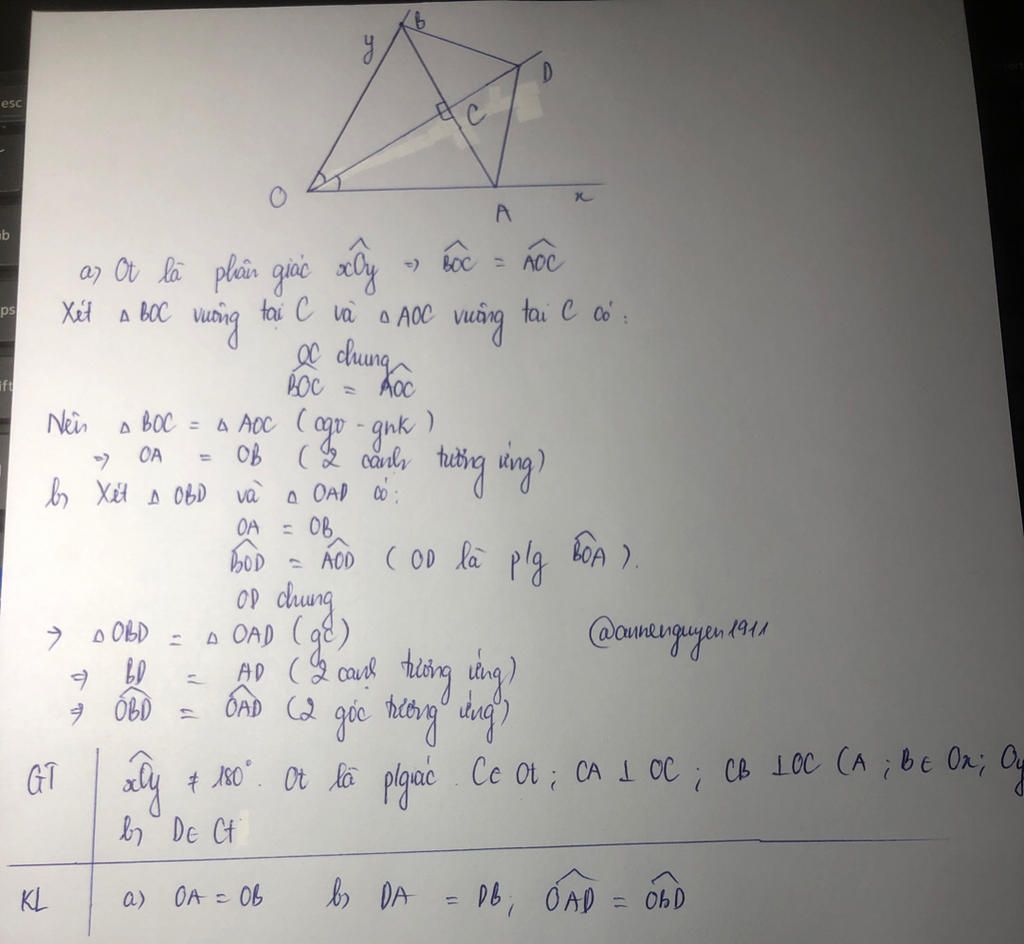 esc
B
y
D
C
O
A
x
a) Ot là phân giác xÔy => BÔC = AÔC
Xét △ BOC vuông tại C và △ AOC vuông tại C có:
OC chung
BÔC = AÔC
Nên △ BOC = △ AOC (cgv - gnk)
=> OA = OB (2 cạnh tương ứng)
b) Xét △ OBD và △ OAD có:
OA = OB
BÔD = AÔD (OD là p/g BÔA).
OD chung
=> △ OBD = △ OAD (gc)
=> BD = AD (2 cạnh tương ứng)
=> OB̂D = OÂD (2 góc tương ứng)
@annenguyen1911
GT xÔy ≠ 180°. Ot là p/giác. C∈ Ot; CA ⊥ OC; CB ⊥ OC (A; B ∈ Ox; Oy
b) D∈ Ct
KL a) OA = OB b) DA = DB; OÂD = OB̂D